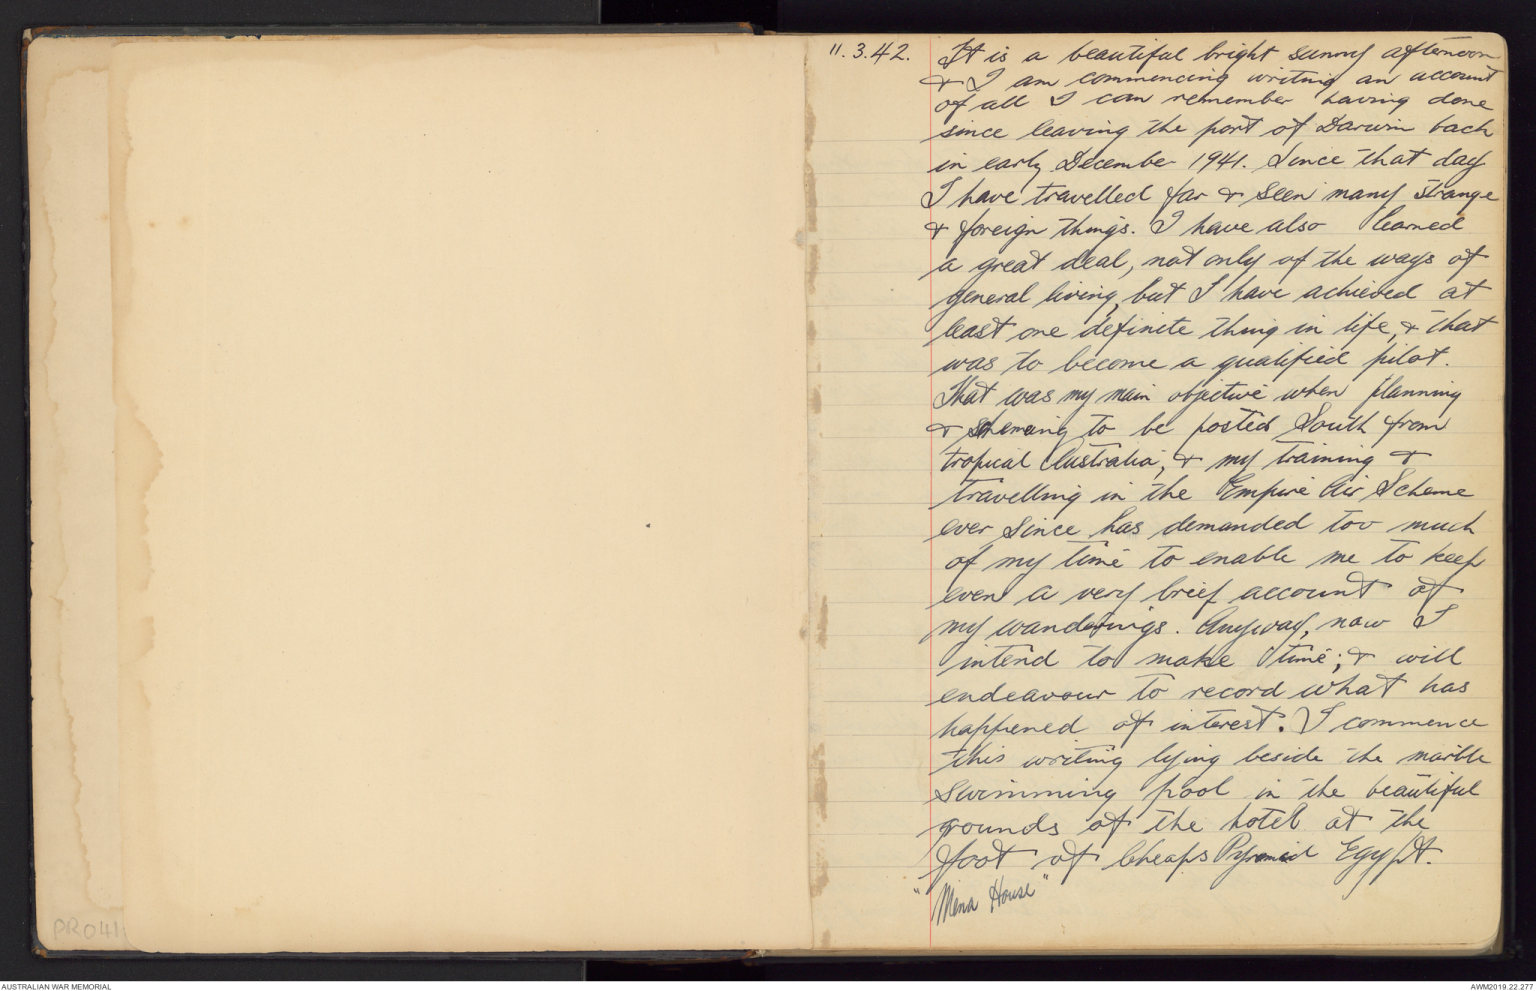 11.3.42. It is a beautiful bright sunny afternoon
& I am commencing writing an account
of all I can remember having done
since leaving the port of Darwin back
in early December 1941. Since that day
I have travelled far & seen many strange
& foreign things. I have also learned
a great deal, not only of the ways of
general living, but I have achieved at
least one definite thing in life, & that
was to become a qualified pilot.
That was my main objective when planning
& scheming to be posted South from
tropical Australia, & my training &
travelling in the Empire Air Scheme
ever since has demanded too much
of my time to enable me to keep
even a very brief account of
my wanderings. Anyway, now I
intend to make time; & will
endeavour to record what has
happened of interest. I commence
this writing lying beside the marble
swimming pool in the beautiful
grounds of the hotel at the
foot of Cheops Pyramid Egypt.
"Mena House"
PR041
AUSTRALIAN WAR MEMORIAL
AWM2019.22.277